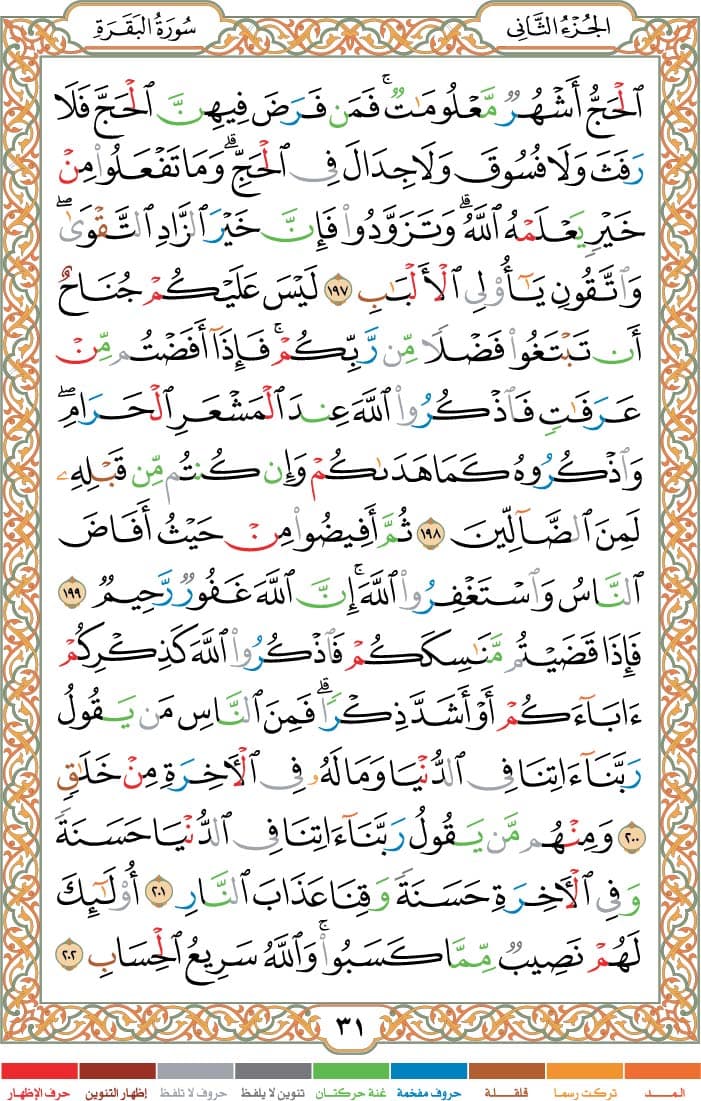 الجُزْءُ الثَّانِي
سُورَةُ البَقَرَةِ
ٱلۡحَجُّ أَشۡهُرٞ مَّعۡلُومَٰتٞۚ فَمَن فَرَضَ فِيهِنَّ ٱلۡحَجَّ فَلَا
رَفَثَ وَلَا فُسُوقَ وَلَا جِدَالَ فِي ٱلۡحَجِّۗ وَمَا تَفۡعَلُواْ مِنۡ
خَيۡرٖ يَعۡلَمۡهُ ٱللَّهُۗ وَتَزَوَّدُواْ فَإِنَّ خَيۡرَ ٱلزَّادِ ٱلتَّقۡوَىٰۖ
وَٱتَّقُونِ يَٰٓأُوْلِي ٱلۡأَلۡبَٰبِ ١٩٧ لَيۡسَ عَلَيۡكُمۡ جُنَاحٌ
أَن تَبۡتَغُواْ فَضۡلٗا مِّن رَّبِّكُمۡۚ فَإِذَآ أَفَضۡتُم مِّنۡ
عَرَفَٰتٖ فَٱذۡكُرُواْ ٱللَّهَ عِندَ ٱلۡمَشۡعَرِ ٱلۡحَرَامِۖ
وَٱذۡكُرُوهُ كَمَا هَدَىٰكُمۡ وَإِن كُنتُم مِّن قَبۡلِهِۦ
لَمِنَ ٱلضَّآلِّينَ ١٩٨ ثُمَّ أَفِيضُواْ مِنۡ حَيۡثُ أَفَاضَ
ٱلنَّاسُ وَٱسۡتَغۡفِرُواْ ٱللَّهَۚ إِنَّ ٱللَّهَ غَفُورٞ رَّحِيمٞ ١٩٩
فَإِذَا قَضَيۡتُم مَّنَٰسِكَكُمۡ فَٱذۡكُرُواْ ٱللَّهَ كَذِكۡرِكُمۡ
ءَابَآءَكُمۡ أَوۡ أَشَدَّ ذِكۡرٗاۗ فَمِنَ ٱلنَّاسِ مَن يَقُولُ
رَبَّنَآ ءَاتِنَا فِي ٱلدُّنۡيَا وَمَا لَهُۥ فِي ٱلۡأٓخِرَةِ مِنۡ خَلَٰقٖ
٢٠٠ وَمِنۡهُم مَّن يَقُولُ رَبَّنَآ ءَاتِنَا فِي ٱلدُّنۡيَا حَسَنَةٗ
وَفِي ٱلۡأٓخِرَةِ حَسَنَةٗ وَقِنَا عَذَابَ ٱلنَّارِ ٢٠١ أُوْلَٰٓئِكَ
لَهُمۡ نَصِيبٞ مِّمَّا كَسَبُواْۚ وَٱللَّهُ سَرِيعُ ٱلۡحِسَابِ ٢٠٢
٣١
المـــد تركت رسما قلقـلـة حروف مفخمة غنة حركتان تنوين لا يلفظ حروف لا تلفظ إظهار التنوين حرف الإظهار